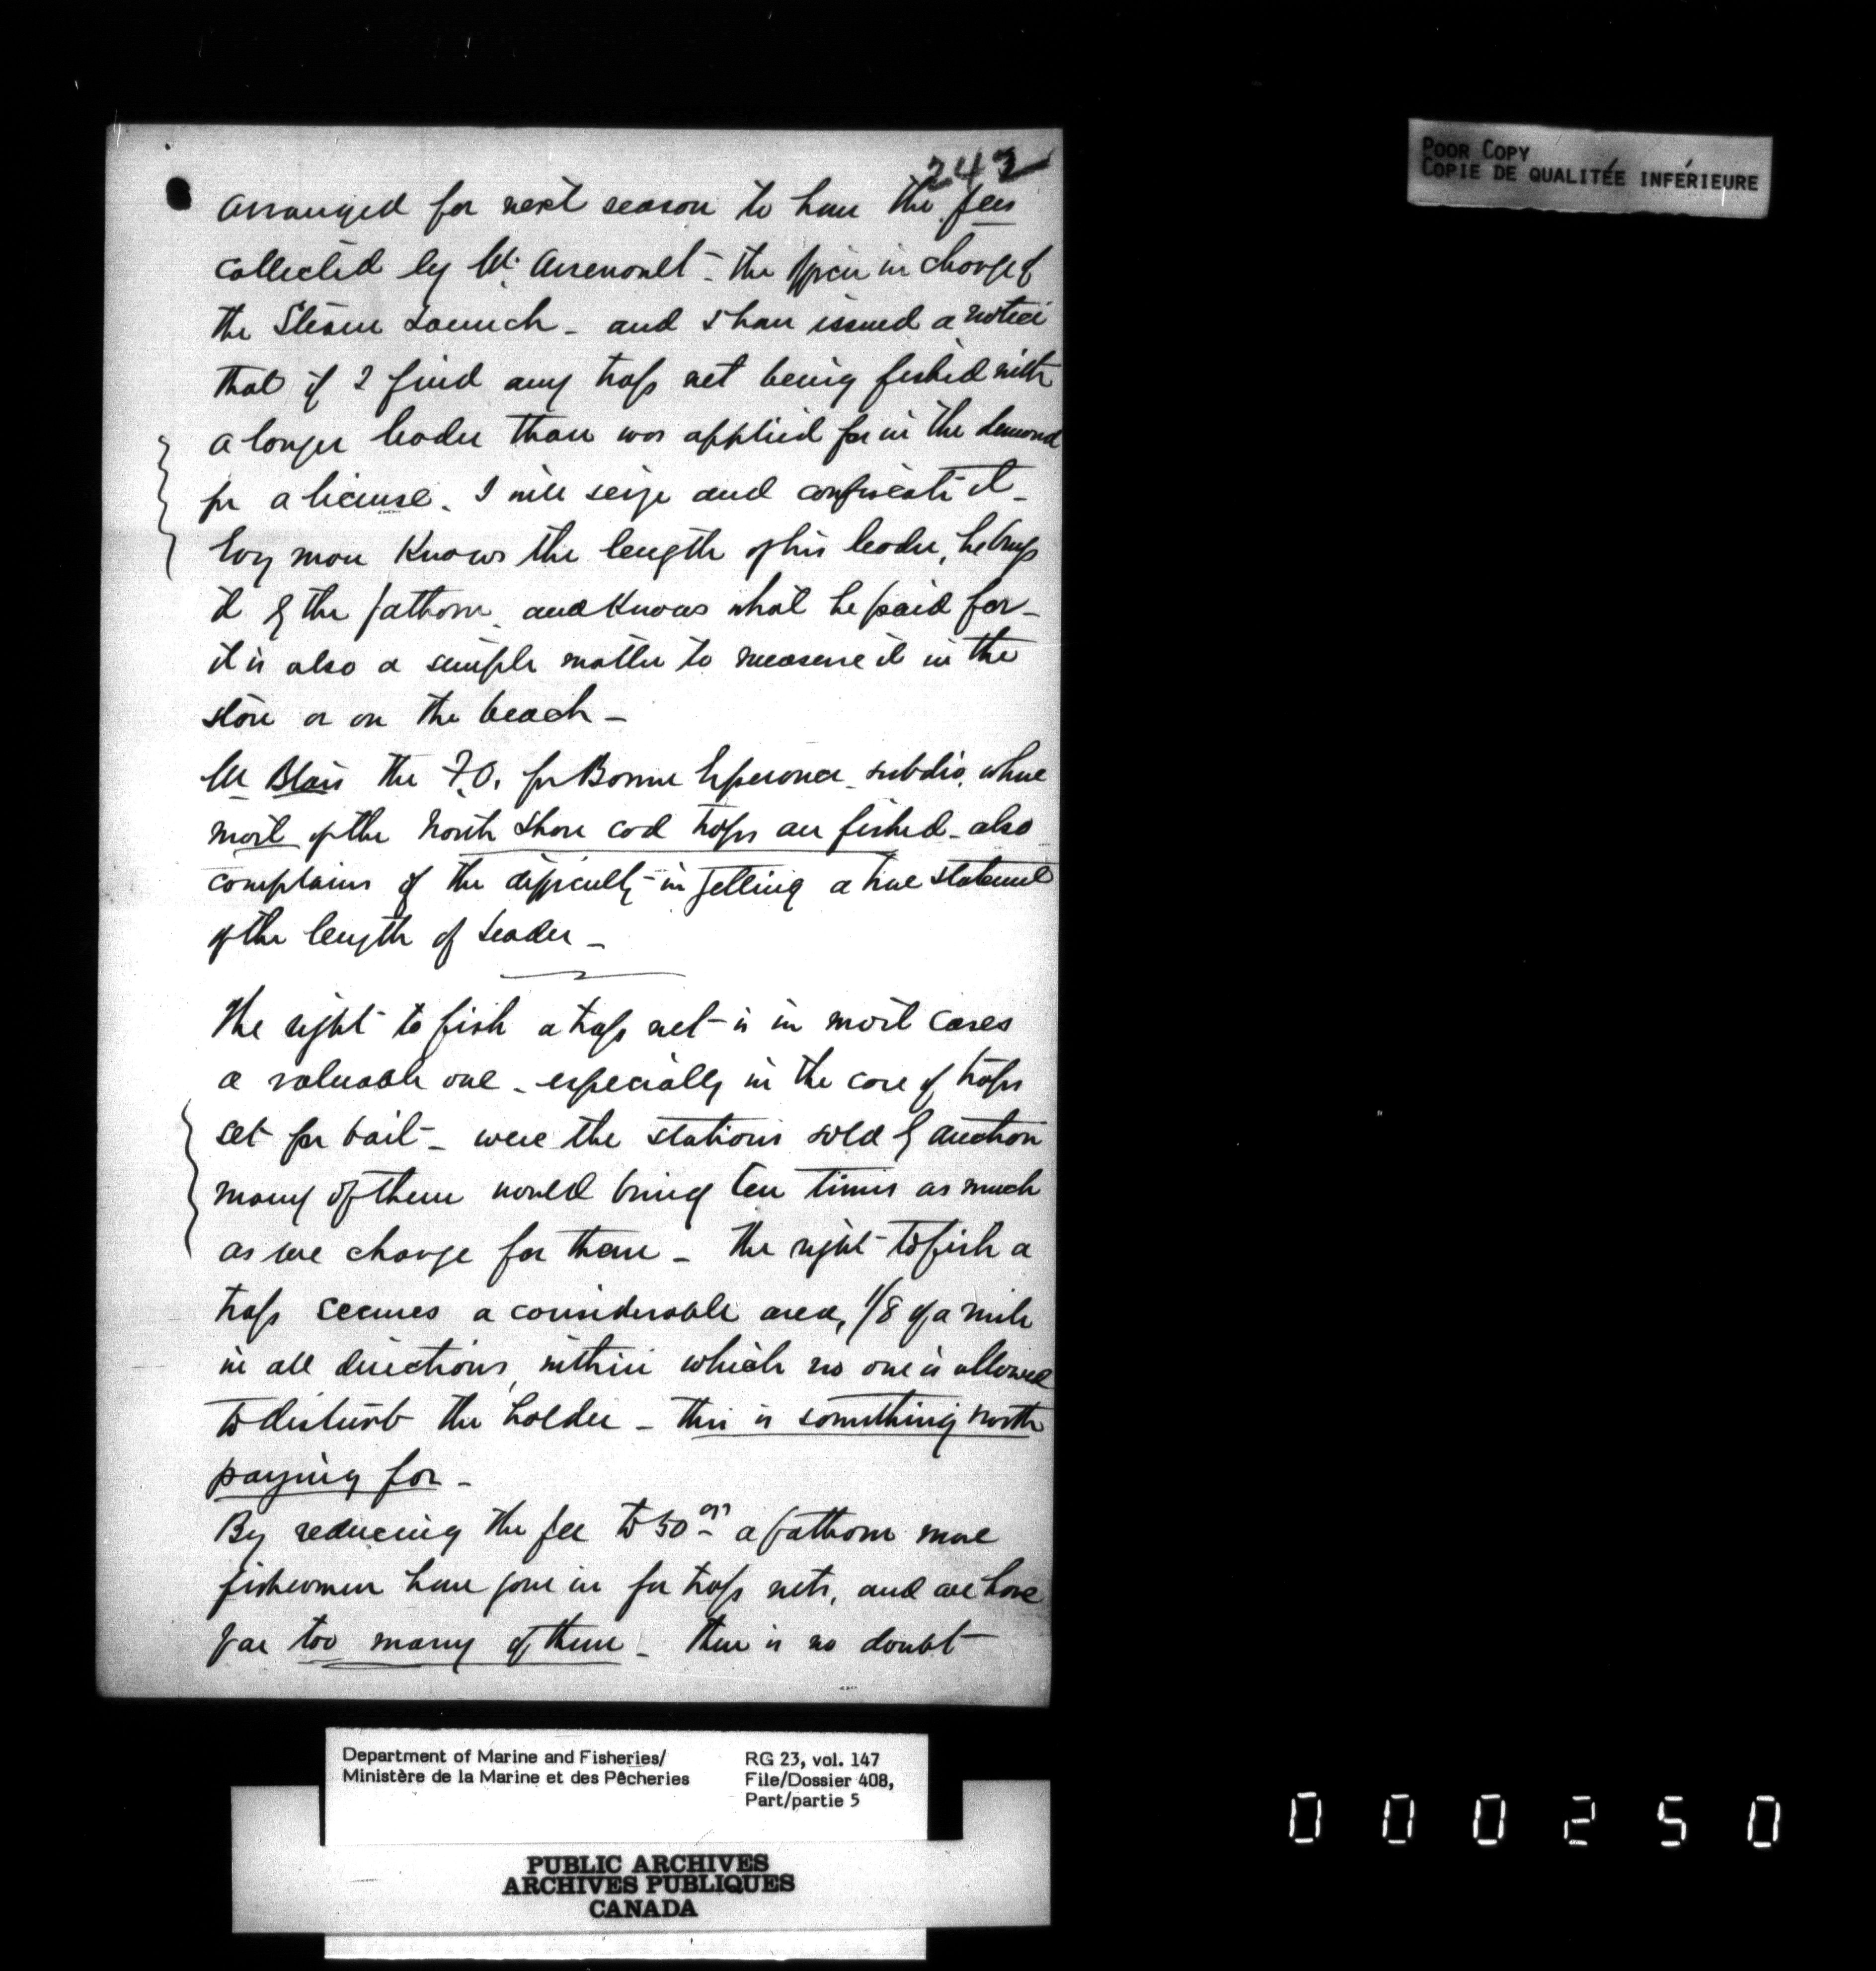 242
arranged for next season to have the fees
collected by Mr. Arsenault - the officer in charge of
the Steam Launch - and I have issued a notice
that if I find any trap net being fished with
a longer leader than was applied for in the demand
for a license. I will seize and confiscate it -
Every man knows the length of his leader, he buys
it by the fathom and knows what he paid for -
it is also a simple matter to measure it in the
store or on the beach -
Mr Blais the F.O. for Bonne Esperance subdiv. where
most of the North Shore cod traps are fished - also
complains of the difficulty in getting a true statement
of the length of Leader -
The right to fish a trap net is in most cases
a valuable one - especially in the case of traps
set for bait - were the stations sold by auction
many of them would bring ten times as much
as we charge for them - The right to fish a
trap secures a considerable area, 1/8 of a mile
in all directions, within which no one is allowed
to disturb the holder - this is something worth
paying for -
By reducing the fee to 50 cts a fathom more
fishermen have gone in for trap nets, and we have
far too many of them - there is no doubt
POOR COPY
COPIE DE QUALITÉE INFÉRIEURE
Department of Marine and Fisheries/
Ministère de la Marine et des Pêcheries
RG 23, vol. 147
File/Dossier 408,
Part/partie 5
PUBLIC ARCHIVES
ARCHIVES PUBLIQUES
CANADA
000250